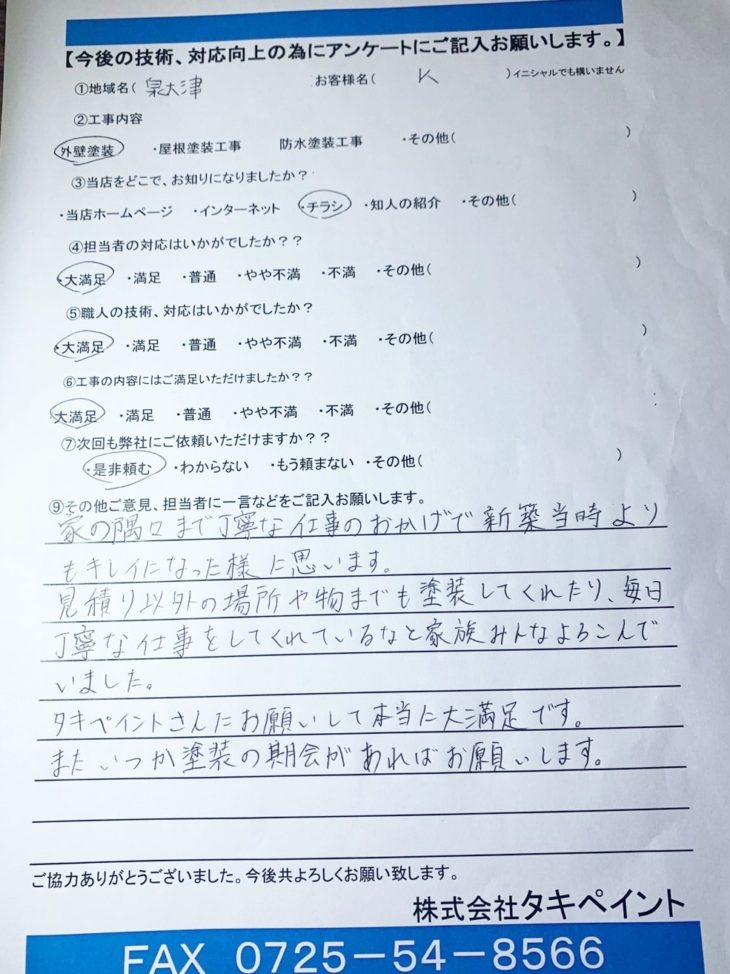 【今後の技術、対応向上の為にアンケートにご記入お願いします。】
①地域名( 泉大津 お客様名( K )イニシャルでも構いません
②工事内容
外壁塗装 ・屋根塗装工事 防水塗装工事 ・その他( )
③当店をどこで、お知りになりましたか？
・当店ホームページ ・インターネット ・チラシ ・知人の紹介 ・その他( )
④担当者の対応はいかがでしたか？？
・大満足 ・満足 ・普通 ・やや不満 ・不満 ・その他( )
⑤職人の技術、対応はいかがでしたか？
・大満足 ・満足 ・普通 ・やや不満 ・不満 ・その他( )
⑥工事の内容にはご満足いただけましたか？？
大満足 ・満足 ・普通 ・やや不満 ・不満 ・その他(
⑦次回も弊社にご依頼いただけますか？？
・是非頼む ・わからない ・もう頼まない ・その他( )
⑨その他ご意見、担当者に一言などをご記入お願いします。
家の隅々まで丁寧な仕事のおかげで新築当時より
もキレイになった様に思います。
見積り以外の場所や物までも塗装してくれたり、毎日
丁寧な仕事をしてくれているなと家族みんなよろこんで
いました。
タキペイントさんにお願いして本当に大満足です。
またいつか塗装の期会があればお願いします。
ご協力ありがとうございました。今後共よろしくお願い致します。
株式会社タキペイント
FAX 0725－54－8566